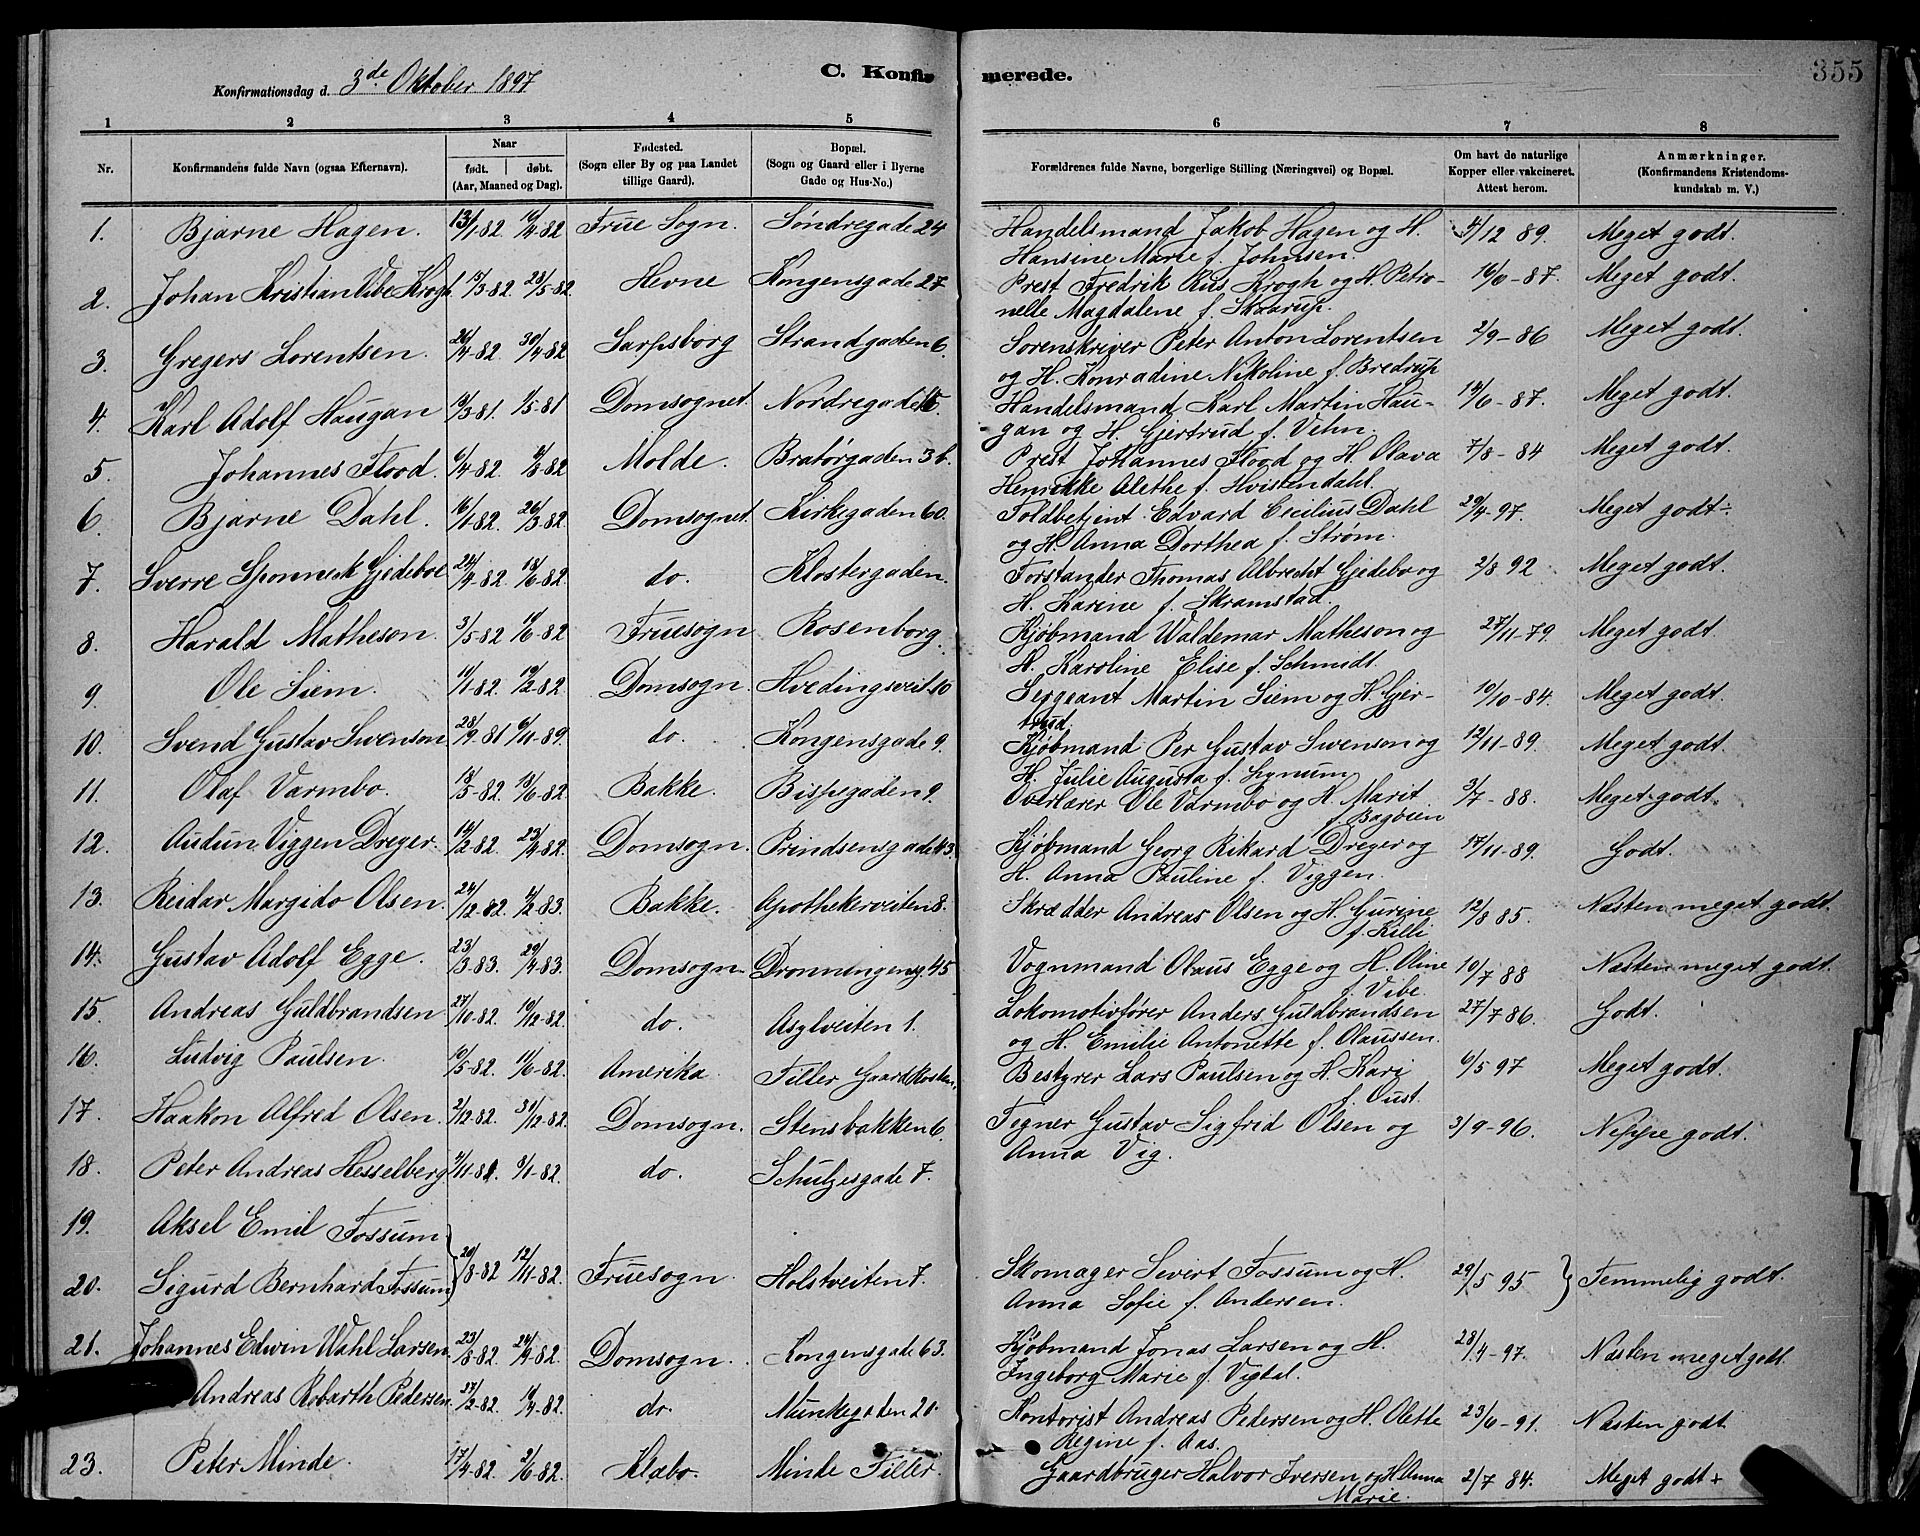 Konfirmationsdag d. 3de Oktober 1897
C. Konfirmerede.
355
1 2 3 4 5 6 7 8
Nr.
Konfirmandens fulde Navn (ogsaa Efternavn).
Naar
født. døbt.
(Aar, Maaned og Dag).
Fødested.
(Sogn eller By og paa Landet
tillige Gaard).
Bopæl.
(Sogn og Gaard eller i Byerne
Gade og Hus-No.)
Forældrenes fulde Navne, borgerlige Stilling (Næringsvei) og Bopæl.
Om havt de naturlige
Kopper eller vakcineret.
Attest herom.
Anmærkninger.
(Konfirmandens Kristendoms-
kundskab m. V.)
1. Bjarne Hagen. 13/1-82 Frue Sogn. Søndregade 24 Handelsmand Jakob Hagen og H. /12 89. Meget godt.
Hansine Marie f. Johnsen.
2. Johan Kristian Vibe Krogh 28/5-82. Hevne Kongensgade 27 Prest Fredrik Rus Krogh og H. Petro- 16/6-87. Meget godt.
nelle Magdalene f. Skaarup.
3. Gregers Lorentsen. 26/4-82 30/4-82 Sarpsborg Strandgaden 6. Sorenskriver Peter Anton Lorentsen 2/9-86 Meget godt.
og H. Konradine Nikoline f. Bredrup
4. Karl Adolf Haugan /3-81. /5-81 Domsognet. Nordregade Handelsmand Karl Martin Hau- 14/6-87. Meget godt.
gan og H. Gjertrud f. Vehn.
5. Johannes Flood. 6/4-82 Molde. Bratørgaden 3b. Prest Johannes Flood og H. Olava 7/8-84 Meget godt.
Henrikke Alethe f. Hvistendahl.
6. Bjarne Dahl. 16/1-82. 26/3-82. Domsognet. Kirkegaden 60. Toldbetjint Edvard Cecilius Dahl 29/4-97. Meget godt÷.
og H. Anna Dorthea f. Strøm.
7. Sverre Sponneck Gjedeboe 24/4-82 18/6-82. do. Klostergaden. Forstander Thomas Albrecht Gjedebo og 2/8 92 Meget godt.
H. Karine f. Skramstad.
8. Harald Matheson. 3/5-82 11/6-82 Fruesogn Rosenborg. Kjøbmand Waldemar Matheson og 27/11-79. Meget godt.
H. Karoline Elise f. Schmidt.
9 Ole Siem. 11/1-82. 19/2-82. Domsogn. Hvedingsveit 10 Sergeant Martin Siem og H. Gjer- 10/10-84. Meget godt.
trud.
10. Svend Gustav Swenson 28/9 81 6/11-89. do. Kongensgade 9. Kjøbmand Per Gustav Swenson og 12/11-89. Meget godt.
H. Julie Augusta f. Lynum
11. Olaf Varmbo. 18/5-82. 18/6-82. Bakke. Bispegaden 9. Overlærer Ole Varmbo og H. Marit 3/7-88. Meget godt.
f. Bagøien
12. Audun Viggen Dreyer. /2-82. 23/4-82. Domsogn. Prindsensgade 43. Kjøbmand Georg Rikard Dreyer og 17/11-89. Godt.
H. Anna Pauline f. Viggen.
13. Reidar Margido Olsen. 24/12-82 11/2-83. Bakke. Apothekerveiten 8. Skrædder Andreas Olsen og H. Gurine 12/8 85. Næsten meget godt.
f. Killi
14. Gustav Adolf Egge. 23/3-83. 29/4-83. Domsogn. Dronningensg. 45 Vognmand Olaus Egge og H. Oline 10/7 88 Næsten meget godt.
f. Vibe.
15. Andreas Guldbrandsen 27/10-82. 10/12-82. do. Asylveiten 1. Lokomotivfører Anders Guldbrandsen 27/7 86. Godt.
og H. Emilie Antonette f. Olaussen.
16. Ludvig Paulsen. 10/5-82. 11/6-82. Amerika. Tiller Gaard Bestyrer Lars Paulsen og H. Kari 6/5 97 Meget godt.
f. Oust.
17. Haakon Alfred Olsen. 2/12-82. 31/12-82. Domsogn. Stensbakken 6. Tegner Gustav Sigfrid Olsen og 3/9-96. Neppe godt.
Anna Vig.
18. Peter Andreas Hesselberg /11-81. 8/1-82. do. Schulzesgade 7.
19. Aksel Emil Fossum
20. Sigurd Bernhard Fossum } 20/8-82 12/11-82. Fruesogn. Holstveiten 7. Skomager Sivert Fossum og H. 29/5 95 } Temmelig godt.
Anna Sofie f. Andersen.
21. Johannes Edwin Wahl Larsen. 23/8-82 24/9-82. Domsogn. Kongensgade 63. Kjøbmand Jonas Larsen og H. 28/4-97. Næsten meget godt.
Ingeborg Marie f. Vigtal.
Andreas Robarth Pedersen. 27/2-82. /4-82. do. Munkegaden 20. Kontorist Andreas Pedersen og H. Olette 23/6-91. Næsten godt.
Regine f. Aas.
23. Peter Minde. 17/4-82. 2/6-82. Klæbo. Minde Tiller. Gaardbruger Halvor Iversen og H. Anna 2/7 84. Meget godt+
Marie.